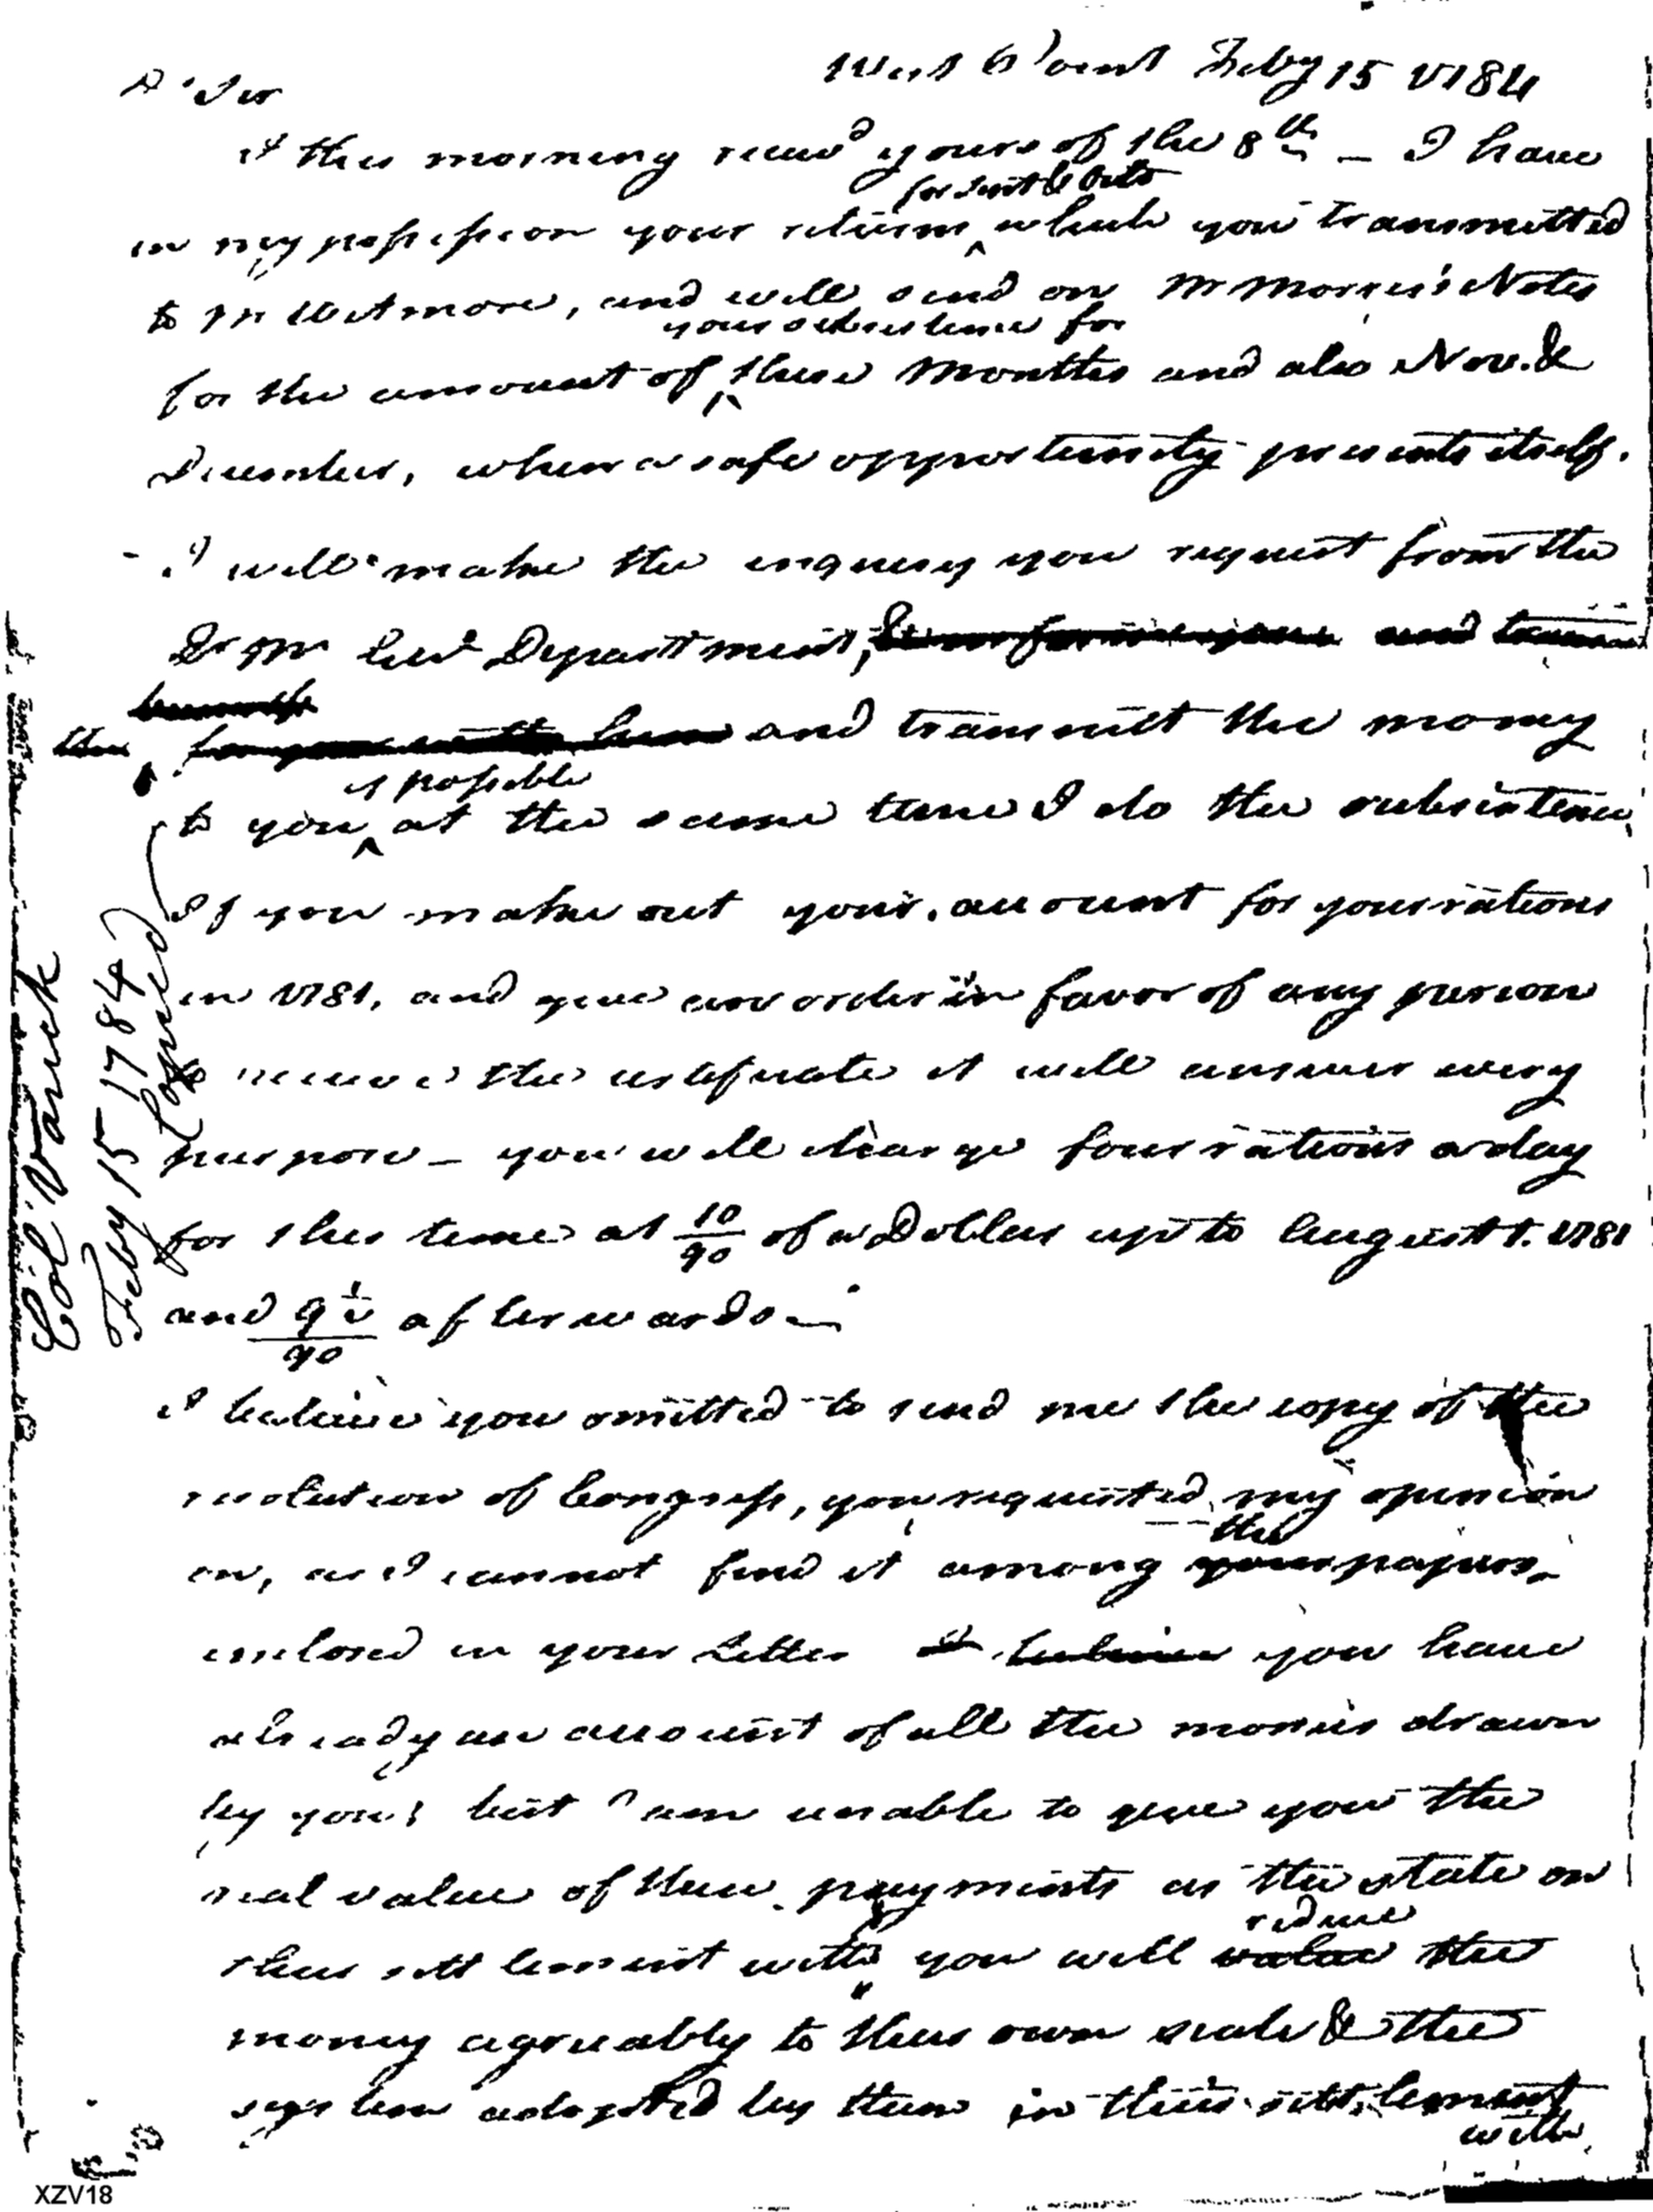 West Point Feby 15 1784
Dr Sir
I this morning recevd yours of the 8th – I have
for Sept & Octo
in my possession your returns which you transmitted
to Mr Wetmore, and will send on Mr Morris's Notes
your subsistence for
for the amount of these months and also Nov. &
December, when a safe opportunity presents itself.
- I will make the enquery you request from the
Qr Mr Genl Department,
and transmit the money
if possible
to you at the same time I do the subsistence,
If you make out your account for your rations
in 1781, and give an order in favor of any person
to receive the certificate it will answer every
purpose – you will charge four rations a day
for this time at 10/90 of a Dollar up to August 1. 1781
and 9½/90 afterwards –
I believe you omitted to send me the copy of the
resolution of Congress, you requested my opinion
the
on, as I cannot find it among your papers
enclosed in your Letter I believe you have
already an account of all the monies drawn
by you; but I am unable to give you the
real value of these payments as the state on
reduce
their settlement with you will value the
money agreeably to their own scale & the
system adopted by them in their settlement
with
Col Varick
Feby 15 1784
Copied
XZV18